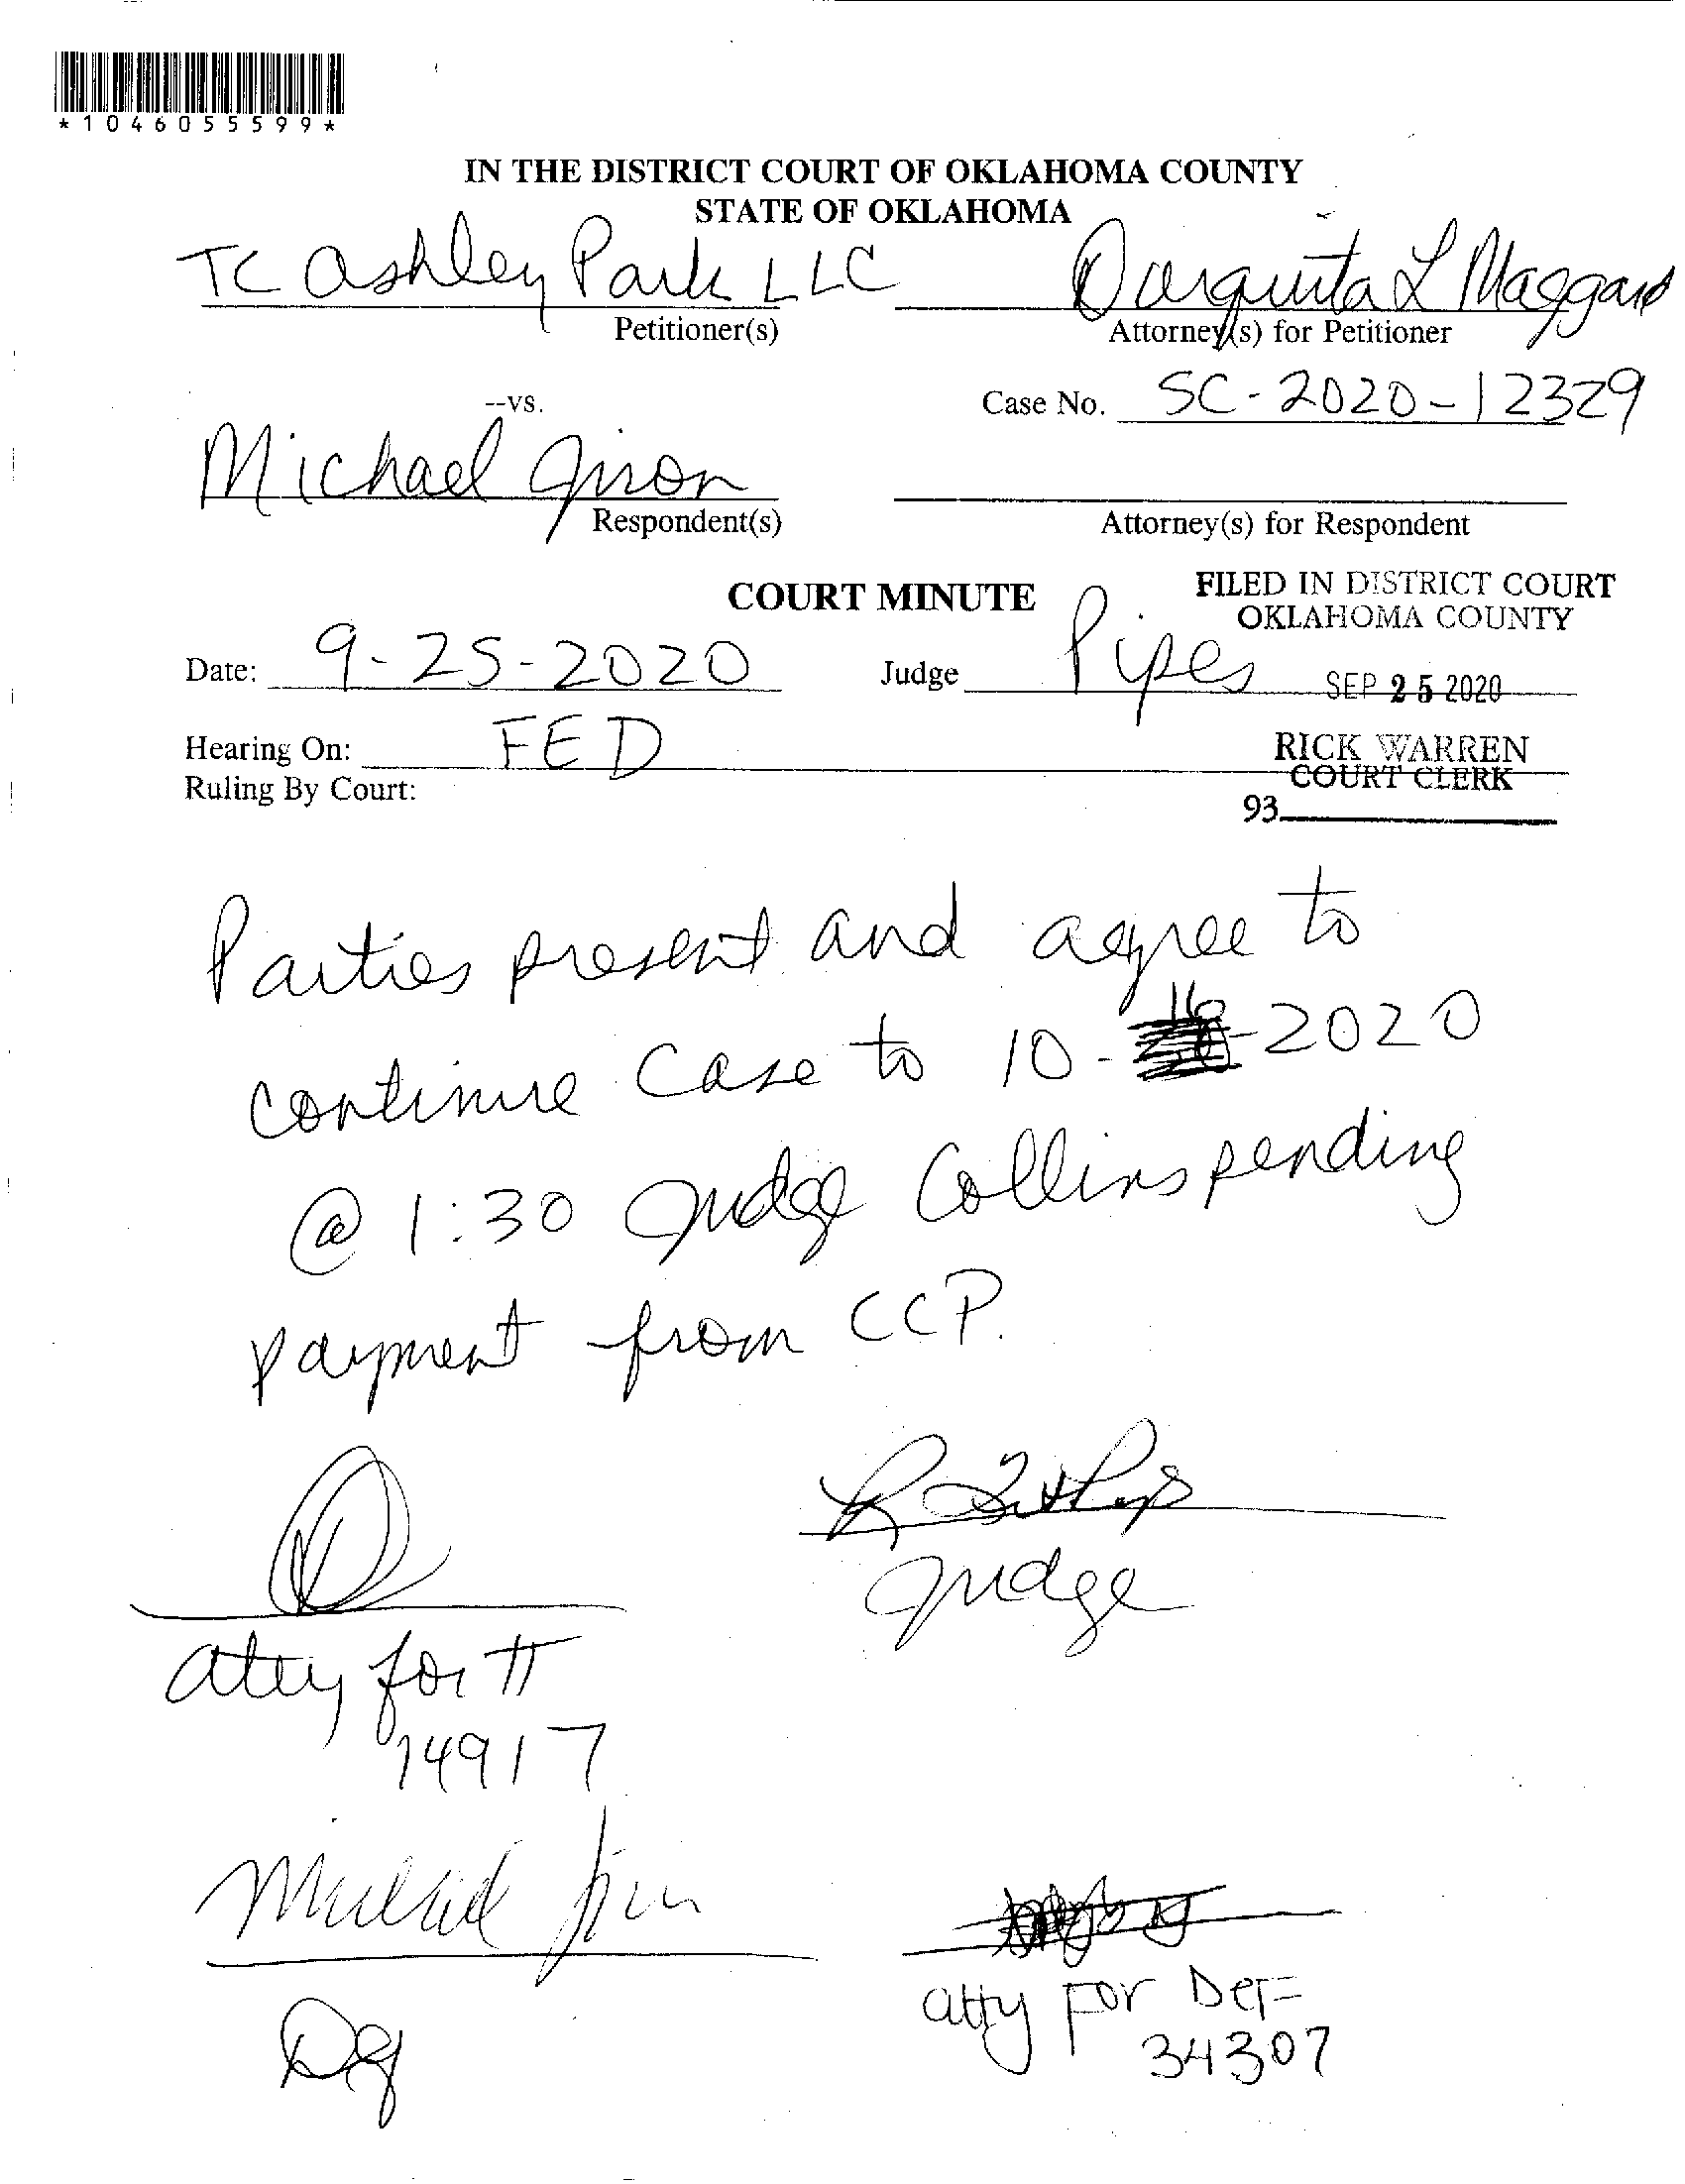 *1046055599*
IN THE DISTRICT COURT OF OKLAHOMA COUNTY
STATE OF OKLAHOMA
TC Ashley Park LLC
Darquita L Maggard
Petitioner(s)
Attorney(s) for Petitioner
--vs.
Case No. SC-2020-12329
Michael Giron
Respondent(s)
Attorney(s) for Respondent
COURT MINUTE
FILED IN DISTRICT COURT
OKLAHOMA COUNTY
Date: 9-25-2020
Judge Pipes
SEP 25 2020
Hearing On: FED
RICK WARREN
COURT CLERK
Ruling By Court:
93
Parties present and agree to
continue case to 10-16-2020
@ 1:30 Judge Collins pending
payment from CCP.
Judge
atty for π
14917
Michael
atty for Def
34307